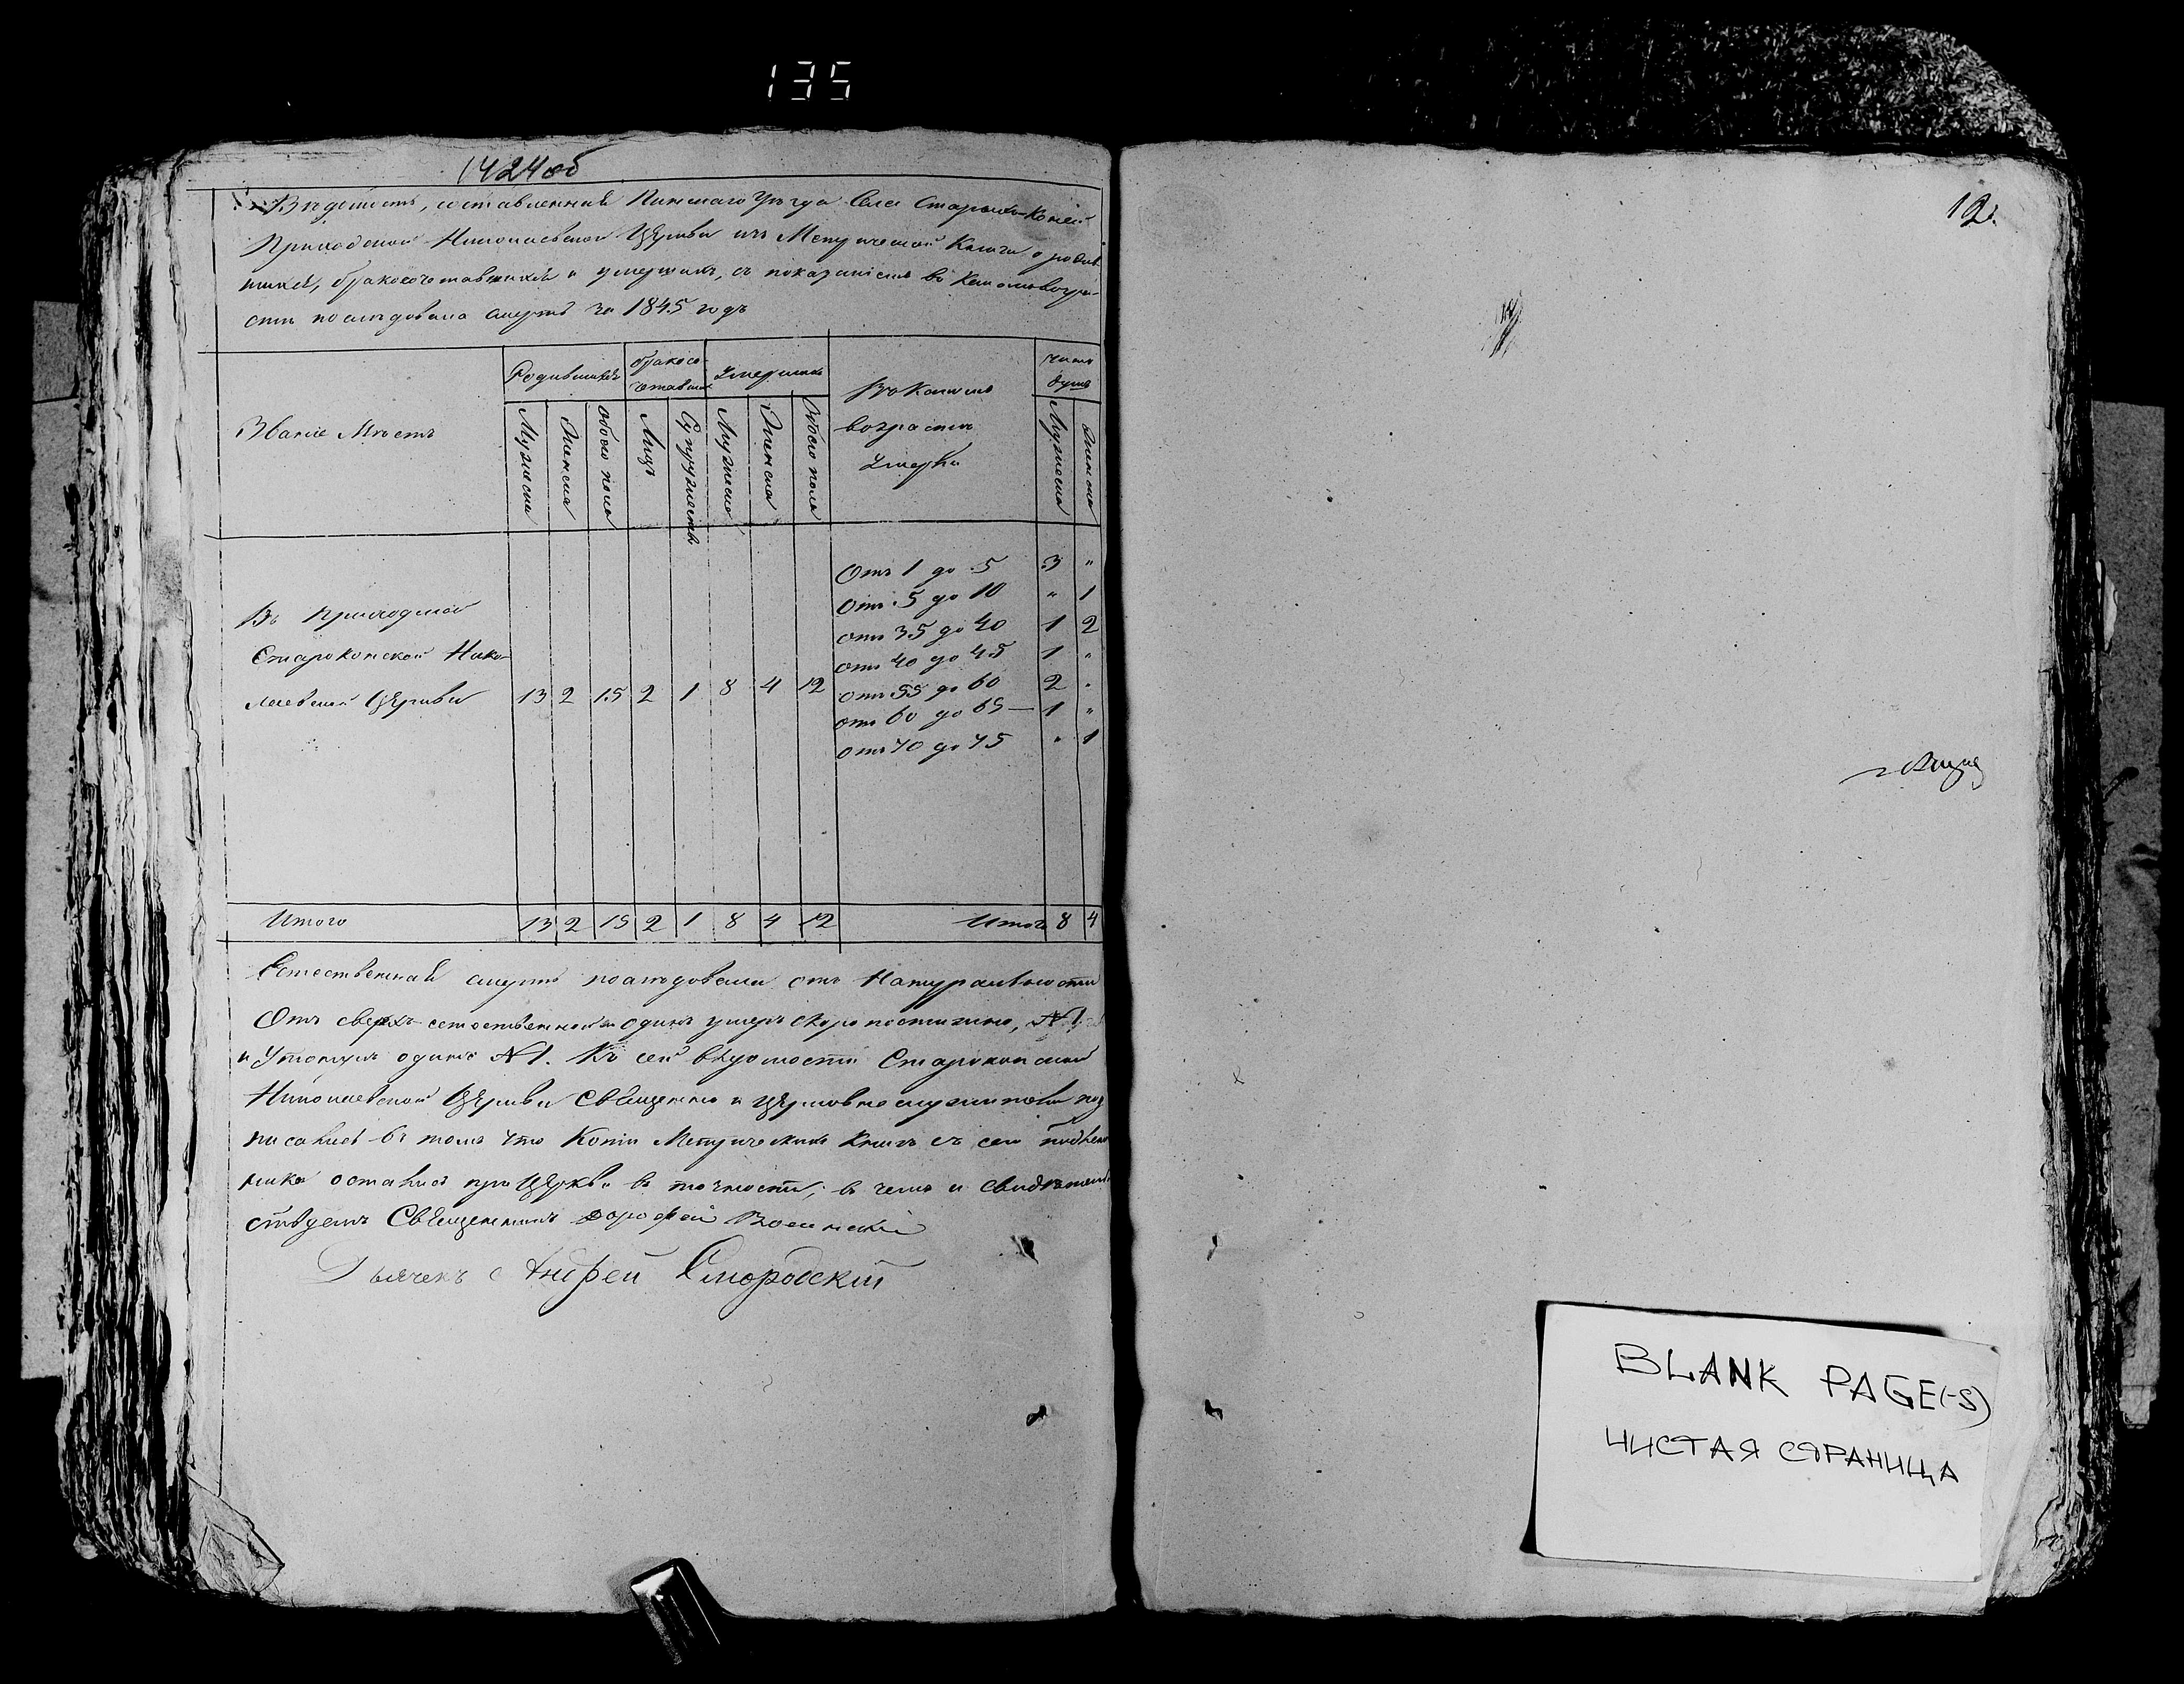 135
1424 об
Вѣдомость, составленная Пинскаго Уѣзда Села Старыхъ-Коней
Приходской Николаевской Церкви изъ Метрической Книги о родив
шихся, бракосочетавшихся и умершихъ, съ показаніемъ въ какомъ возра-
стѣ послѣдовала смерть за 1845 годъ
Званіе Мѣстъ
Родившихся
бракосо-
четавших
Умершихъ
Въ Какомъ
возрастѣ
Умерли
число
душъ
Мужеска
Женска
Обоего пола
Лицъ
Супружествъ
Мужеска
Женска
Обоего пола
Мужеска
Женска
Въ Приходской
Староконской Нико-
лаевской Церкви 13 2 15 2 1 8 4 12
Отъ 1 до 5 3 "
Отъ 5 до 10 " 1
отъ 35 до 40 1 2
отъ 40 до 45 1 "
отъ 55 до 60 2 "
отъ 60 до 65 — 1 "
отъ 70 до 75 " 1
Итого 13 2 15 2 1 8 4 12 Итого 8 4
Естественная смерть послѣдовала отъ Натуральности
Отъ сверхъ-естественной одинъ умеръ скоропостижно, №1.
и Утонулъ одинъ №1. Къ сей вѣдомости Староконской
Николаевской Церкви Священно и церковнослужители под
писались въ томъ что Копіи Метрическихъ Книгъ съ сего подлин
ника остались при Церкви въ точности; въ чемъ и свидѣтель
ствуемъ Священникъ Дорофей
Дьячекъ Андрей Смородскій
12.
BLANK PAGE(-S)
ЧИСТАЯ СТРАНИЦА